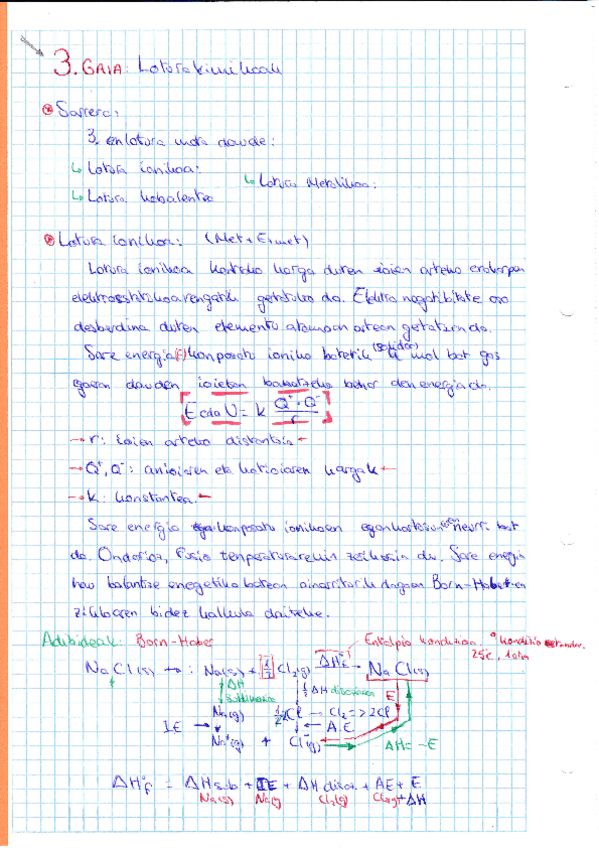 3. GAIA: Lotura kimikoak
Sarrera:
3 lotura mota daude:
↳ Lotura ionikoa:
↳ Lotura Metalikoa:
↳ Lotura kobalentea
Lotura ionikoa: (Met + Ez met)
Lotura ionikoa kontrako karga duten ioien arteko erakarpen
elektrostatikoarengatik gertatuko da. Elektronegatibitate oso
desberdina duten elementu atomoen artean gertatzen da.
Sare energia (E) konposatu ioniko baterik (solido) mol bat gas
egoeran dauden ioietan banatzeko behar den energia da.
E edo U = k Q⁺·Q⁻ / r
→ r: ioien arteko distantzia ←
→ Q⁺, Q⁻: anioiaren eta katioiaren kargak ←
→ k: konstantea. ←
Sare energia konposatu ionikoen egonkortasunaren neurri bat
da. Ondorioz, fusio tenperaturarekin zerikusia du. Sare energia
hau balantze energetiko batean oinarriturik dagoen Born-Haber-en
zikloaren bidez kalkula daiteke.
Adibideak: Born-Haber
Entalpia kondizioan ° kondizio estandar.
25°C, 1atm
NaCl(s) → : Na(s) + 1/2 Cl₂(g) ΔH°f → NaCl(s)
ΔH sublimazio
1/2 ΔH disoziazioa
E
Na(g)
1/2 2Cl → Cl₂ => 2Cl
IE →
← A.E
Na⁺(g) + Cl⁻(g)
ΔH = -E
ΔH°f = ΔHsub + IE + ΔH disoz. + AE + E
Na(s) Na(g) Cl₂(g) Cl(g) + ΔH